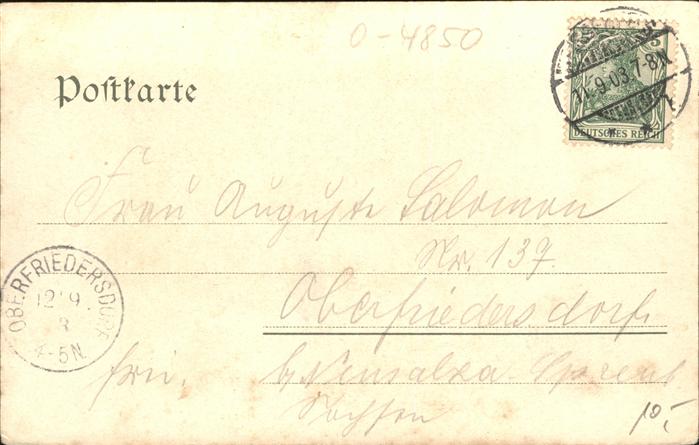 0-4850
Postkarte
11.9.03.7-8N.
DEUTSCHES REICH
Frau Auguste Salomon
Nr. 137.
Oberfriedersdorf
OBERFRIEDERSDORF
12 9
3
4-5N.
frei.
b/ Neusalza Spremb
Sachsen
10,-